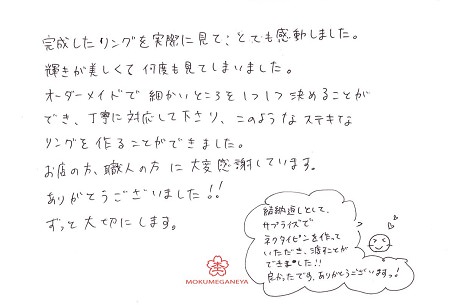 完成したリングを実際に見て、とても感動しました。
輝きが美しくて何度も見てしまいました。
オーダーメイドで細かいところを1つ1つ決めることが
でき、丁寧に対応して下さり、このようなステキな
リングを作ることができました。
お店の方、職人の方に大変感謝しています。
ありがとうございました!!
ずっと大切にします。
結納返しとして、
サプライズで
ネクタイピンを作って
いただき、渡すことが
できました!!
良かったです、ありがとうございますっ!
MOKUMEGANEYA